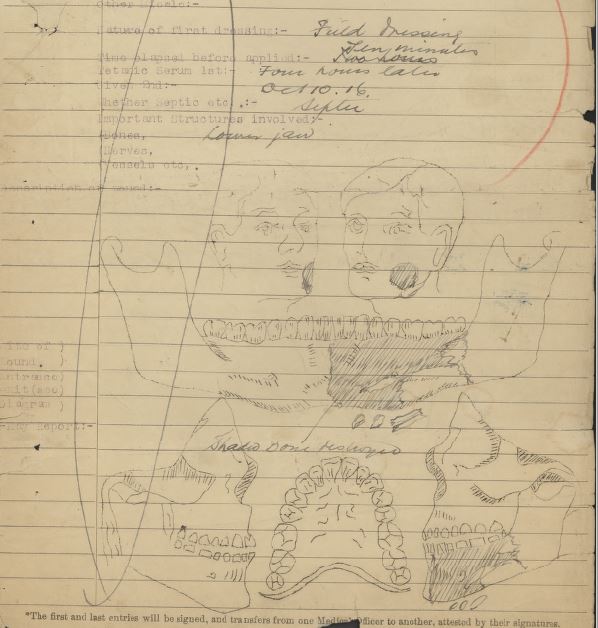 Other
Nature of first dressing:- Field Dressing
Ten minutes
Time elapsed before applied:- Two hours
Tetanic Serum 1st:- Four hours later
Given 2nd:- Oct 10.16.
Whether Septic etc.:- Septic
Important Structures involved:-
(Bones, Lower jaw
(Nerves,
(Vessels etc,.
Description of wound:-
Site of )
Wound. )
Entrance)
Exit(see)
Diagram )
X-Ray Report:-
Shaded bone destroyed
*The first and last entries will be signed, and transfers from one Medical Officer to another, attested by their signatures.